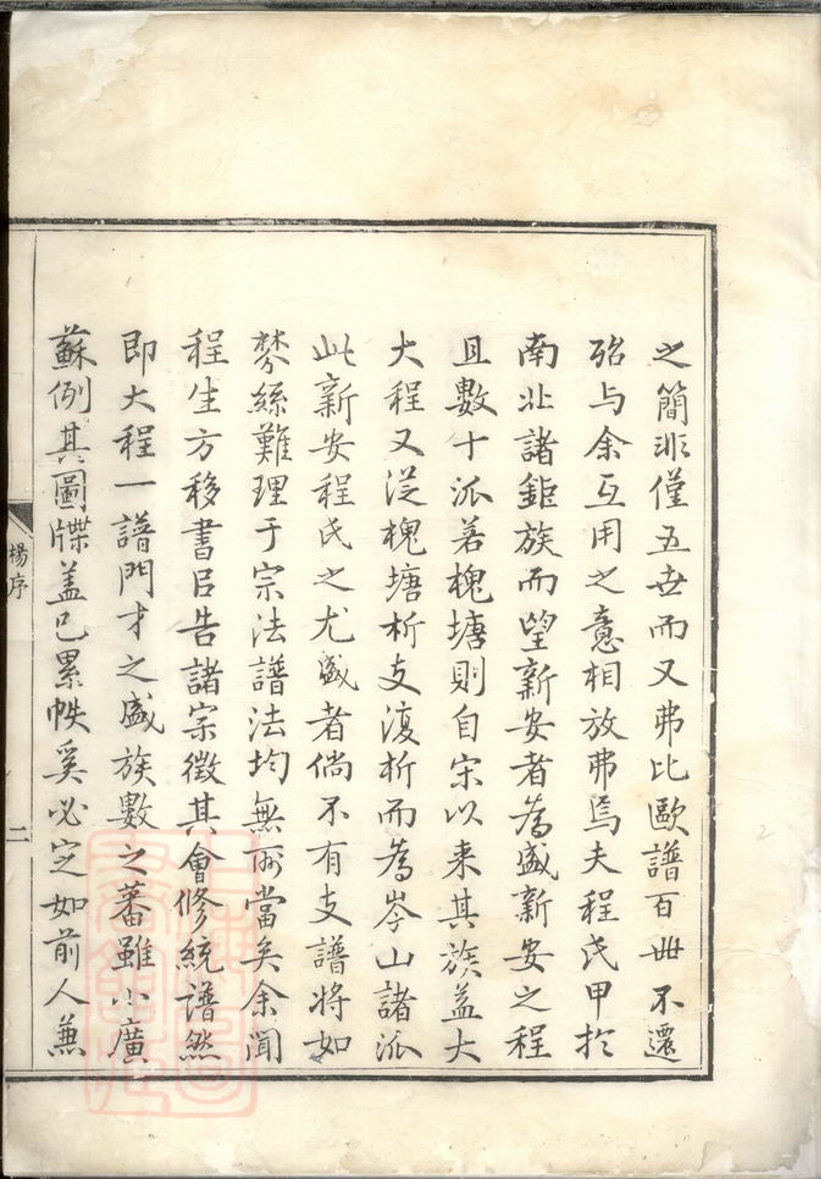 之簡非僅五世而又弗比歐譜百世不遷
殆与余互用之意相放弗焉夫程氏甲於
南北諸鉅族而望新安者為盛新安之程
且數十派若槐塘則自宋以来其族益大
大程又從槐塘析支復析而為岑山諸派
此新安程氏之尤盛者倘不有支譜將如
棼絲難理于宗法譜法均無所當矣余聞
程生方移書曰告諸宗徵其會修統譜然
即大程一譜門才之盛族數之蕃雖小廣
蘇例其圖牒盖已累帙奚必定如前人兼
楊序
二